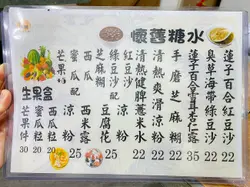 懷舊糖水
蓮子百合紅豆沙 22
臭草海帶綠豆沙 22
蓮子百合杏仁露 35
手磨芝麻糊 22
清熱爽滑涼粉 22
清熱健脾薏米水 22
紅豆沙
綠豆沙
芝麻糊
豆腐花 25
西瓜
蜜瓜配
西米露
芒果
涼粉 25
生果盒
芒果粒 30
蜜瓜粒 20
西瓜粒 20